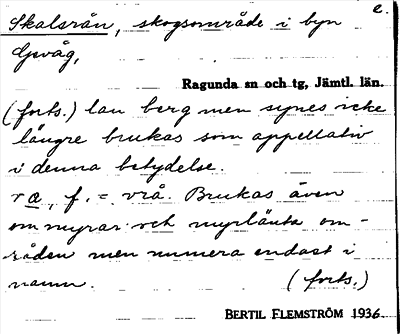 e.
Skalsrån, skogsområde i byn
Gevåg,
Ragunda sn och tg, Jämtl. län.
(forts.) lan berg men synes icke
längre brukas som appellativ
i denna betydelse.
ra, f. = vrå. Brukas även
om myrar och myrlänta om-
råden men numera endast i
namn. (forts.)
BERTIL FLEMSTRÖM 1936.